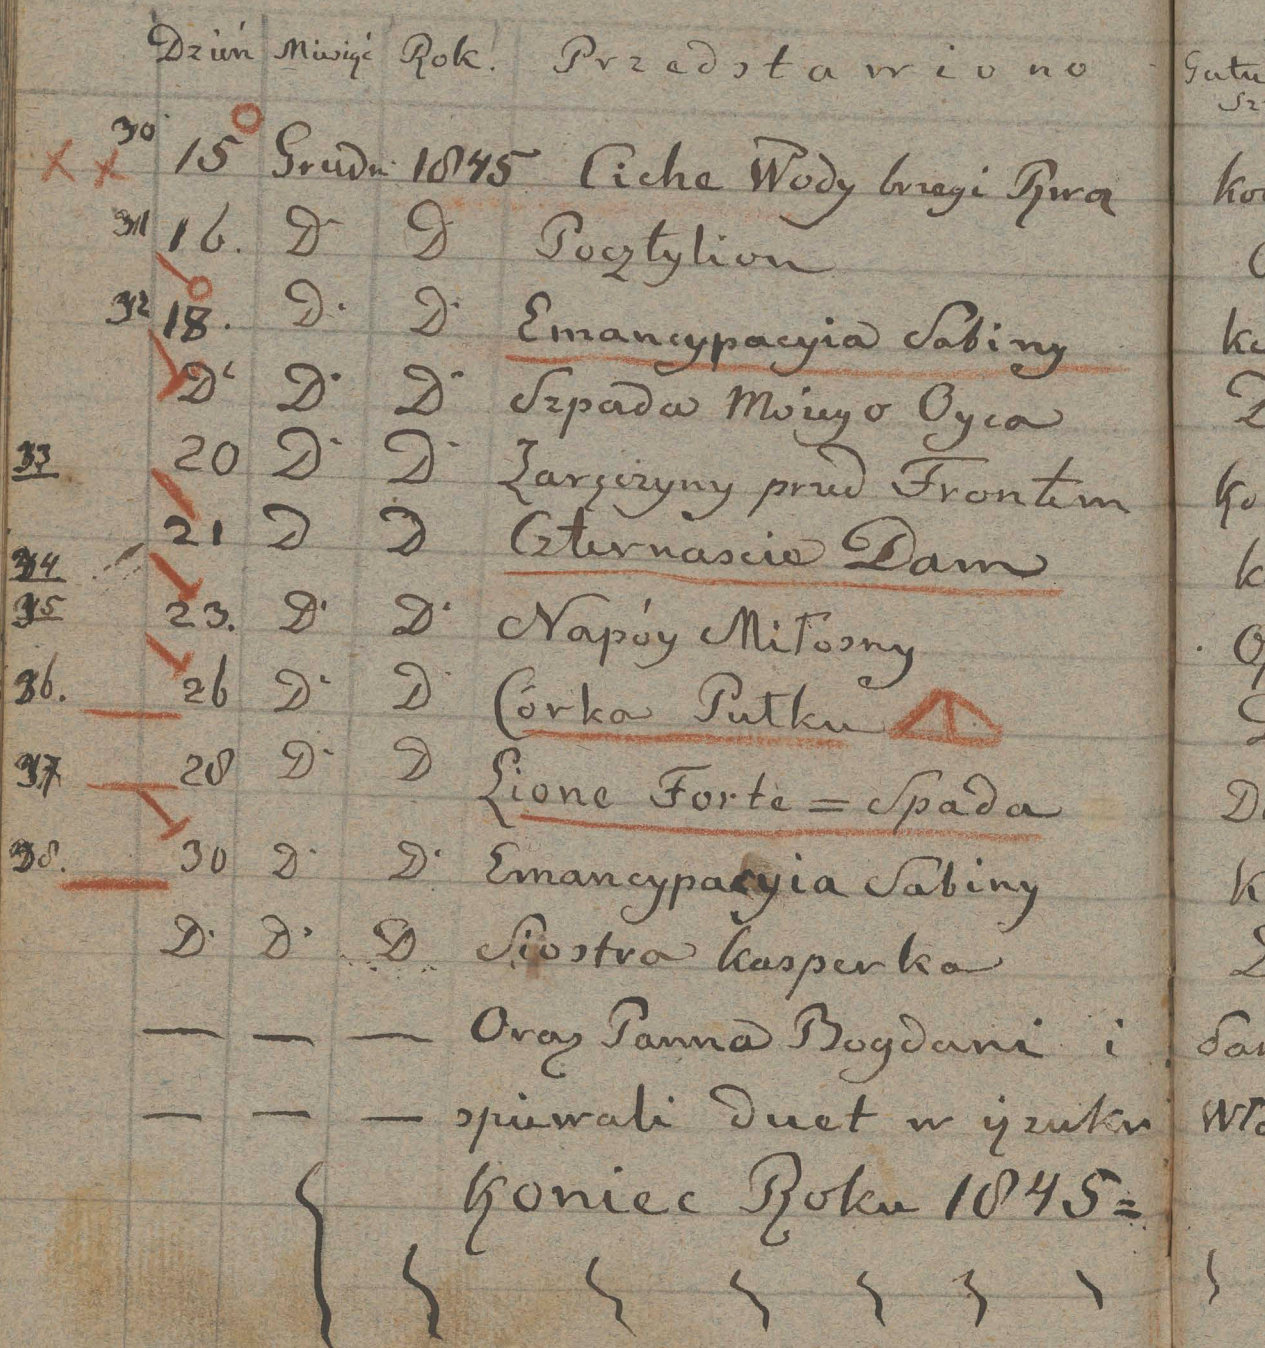 Dzień Miesiąc Rok. Przedstawiono
30 15 Grudn 1845 Ciche Wody brzegi Rwą
31 16. D D Pocztylion
32 18. D. D. Emancypacyia Sabiny
D. D. D. Szpada Moiego Oyca
33 20 D. D. Zaręczyny przed Frontem
21 D D Czternascie Dam
34
35 23. D. D. Napóy Miłosny
36. 26 D. D Córka Pułku
37 28 D. D Lione Forte = Spada
38. 30 D. D. Emancypacyia Sabiny
D. D. D Siostra Kasperka
— — — Oraz Panna Bogdani i
— — — spiewali duet w ięzuku
Koniec Roku 1845 =